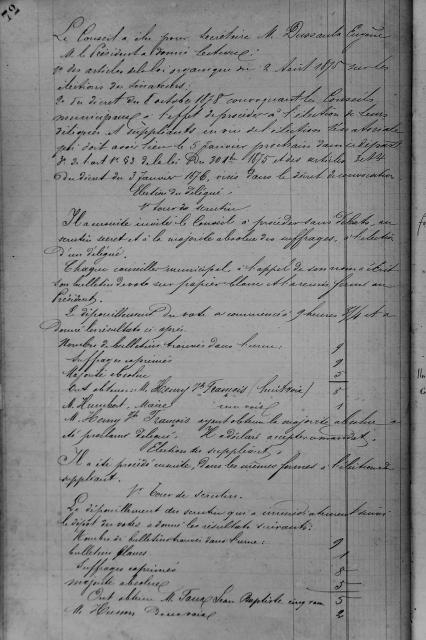 72
Le Conseil a élu pour secrétaire M. Dussaula Eugène
M. le Président a donné lecture:
1º des articles de la loi organique du 2 Août 1875 sur les
élections des Sénateurs;
2º du décret du 8 octobre 1878 convoquant les Conseils
municipaux à l'effet de procéder à l'élection de leurs
délégués et suppléants en vue de l'élection Sénatoriale
qui doit avoir lieu le 5 janvier prochain dans le départ
de la loi du 30 9bre 1875 et des articles
du décret du 3 janvier 1876, visés dans le décret de convocation
Élection du délégué.
1er tour de scrutin
Il a ensuite invité le Conseil à procéder sans débats, au
scrutin secret et à la majorité absolue des suffrages, à l'élection
d'un délégué.
Chaque conseiller municipal, à l'appel de son nom a écrit
son bulletin de vote sur papier blanc et l'a remis fermé au
Président.
Le dépouillement du vote a commencé à 9 heures 3/4 et a
donné les résultats ci après.
Nombre de bulletins trouvés dans l'urne: 9
Suffrages exprimés 9
Majorité absolue 5
Ont obtenu: M. Henry Vr François (huit voix) 8
M. Humbert, Maire une voix 1
M. Henry Vr François ayant obtenu la majorité absolue a
été proclamé délégué. Il a déclaré accepter ce mandat.
Élection du suppléant.
Il a été procédé ensuite, dans les mêmes formes à l'élection du
suppléant.
1er Tour de scrutin.
Le dépouillement du scrutin qui a immédiatement suivi
le dépôt des votes a donné les résultats suivants:
Nombre de bulletins trouvés dans l'urne: 9
bulletin blanc 1
Suffrages exprimés 8
majorité absolue 5
Ont obtenu M. Jean Baptiste cinq voix 5
M. Husson Deux voix 2